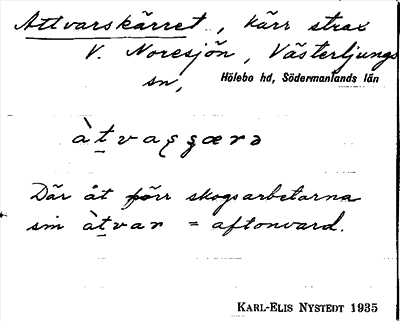 Attvarskärret, kärr strax
V. Noresjön, Västerljungs
sn, Hölebo hd, Södermanlands län
àt̠vaʂʂærə
Där åt förr skogsarbetarna
sin àt̠var = aftonvard.
KARL-ELIS NYSTEDT 1935